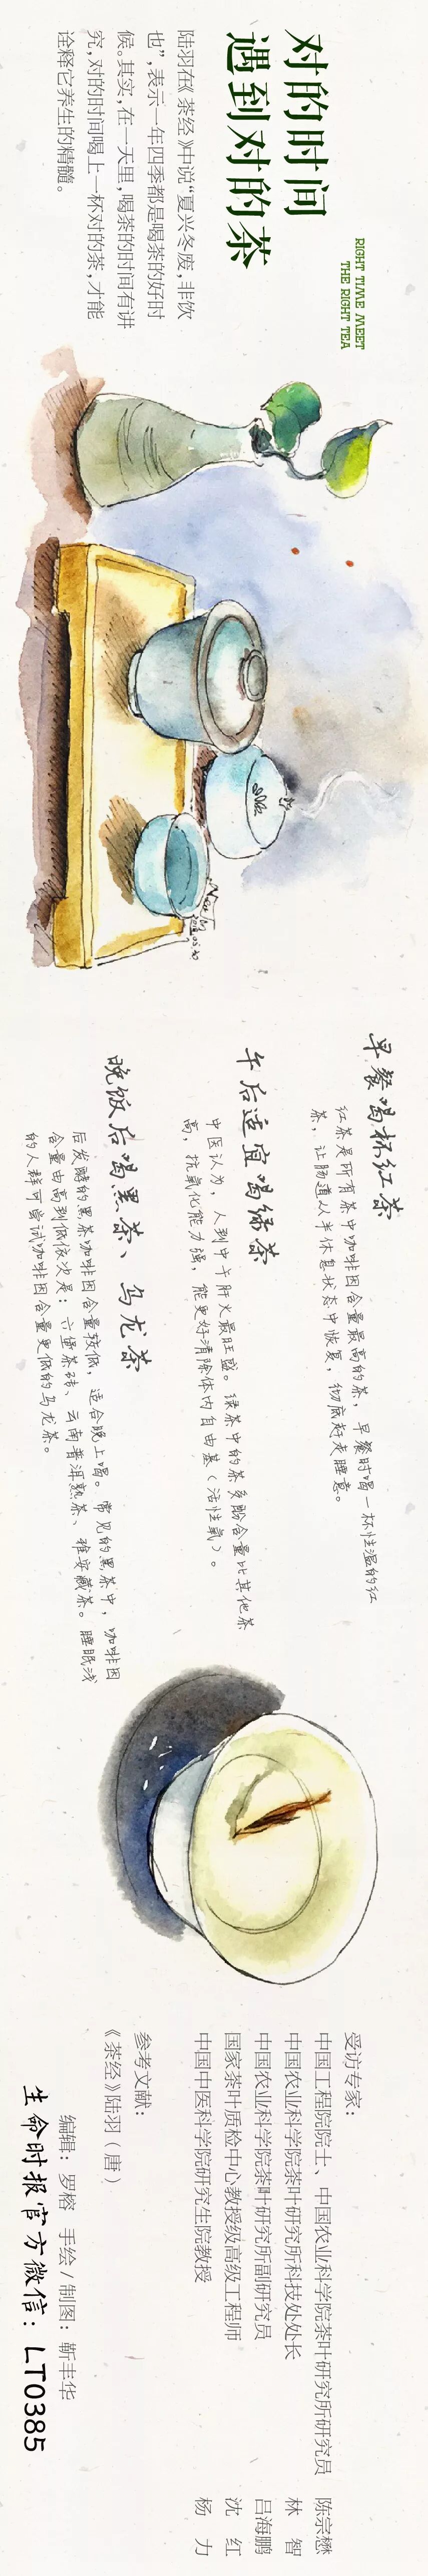 RIGHT TIME MEET
THE RIGHT TEA
对的时间
遇到对的茶
陆羽在《茶经》中说“夏兴冬废,非饮
也”,表示一年四季都是喝茶的好时
候。其实,在一天里,喝茶的时间有讲
究,对的时间喝上一杯对的茶,才能
诠释它养生的精髓。
早餐喝杯红茶
红茶是所有茶中咖啡因含量最高的茶,早餐时喝一杯性温的红
茶,让肠道从半休息状态中恢复,彻底赶走睡意。
午后适宜喝绿茶
中医认为,人到中午肝火最旺盛。绿茶中的茶多酚含量比其他茶
高,抗氧化能力强,能更好清除体内自由基(活性氧)。
晚饭后喝黑茶、乌龙茶
后发酵的黑茶咖啡因含量较低,适合晚上喝。常见的黑茶中,咖啡因
含量由高到低依次是:六堡茶砖、云南普洱熟茶、雅安藏茶。睡眠浅
的人群可尝试咖啡因含量更低的乌龙茶。
受访专家:
中国工程院院士、中国农业科学院茶叶研究所研究员 陈宗懋
中国农业科学院茶叶研究所科技处处长 林 智
中国农业科学院茶叶研究所副研究员 吕海鹏
国家茶叶质检中心教授级高级工程师 沈 红
中国中医科学院研究生院教授 杨 力
参考文献:
《茶经》陆羽(唐)
编辑:罗榕 手绘/制图:靳丰华
生命时报官方微信:LT0385